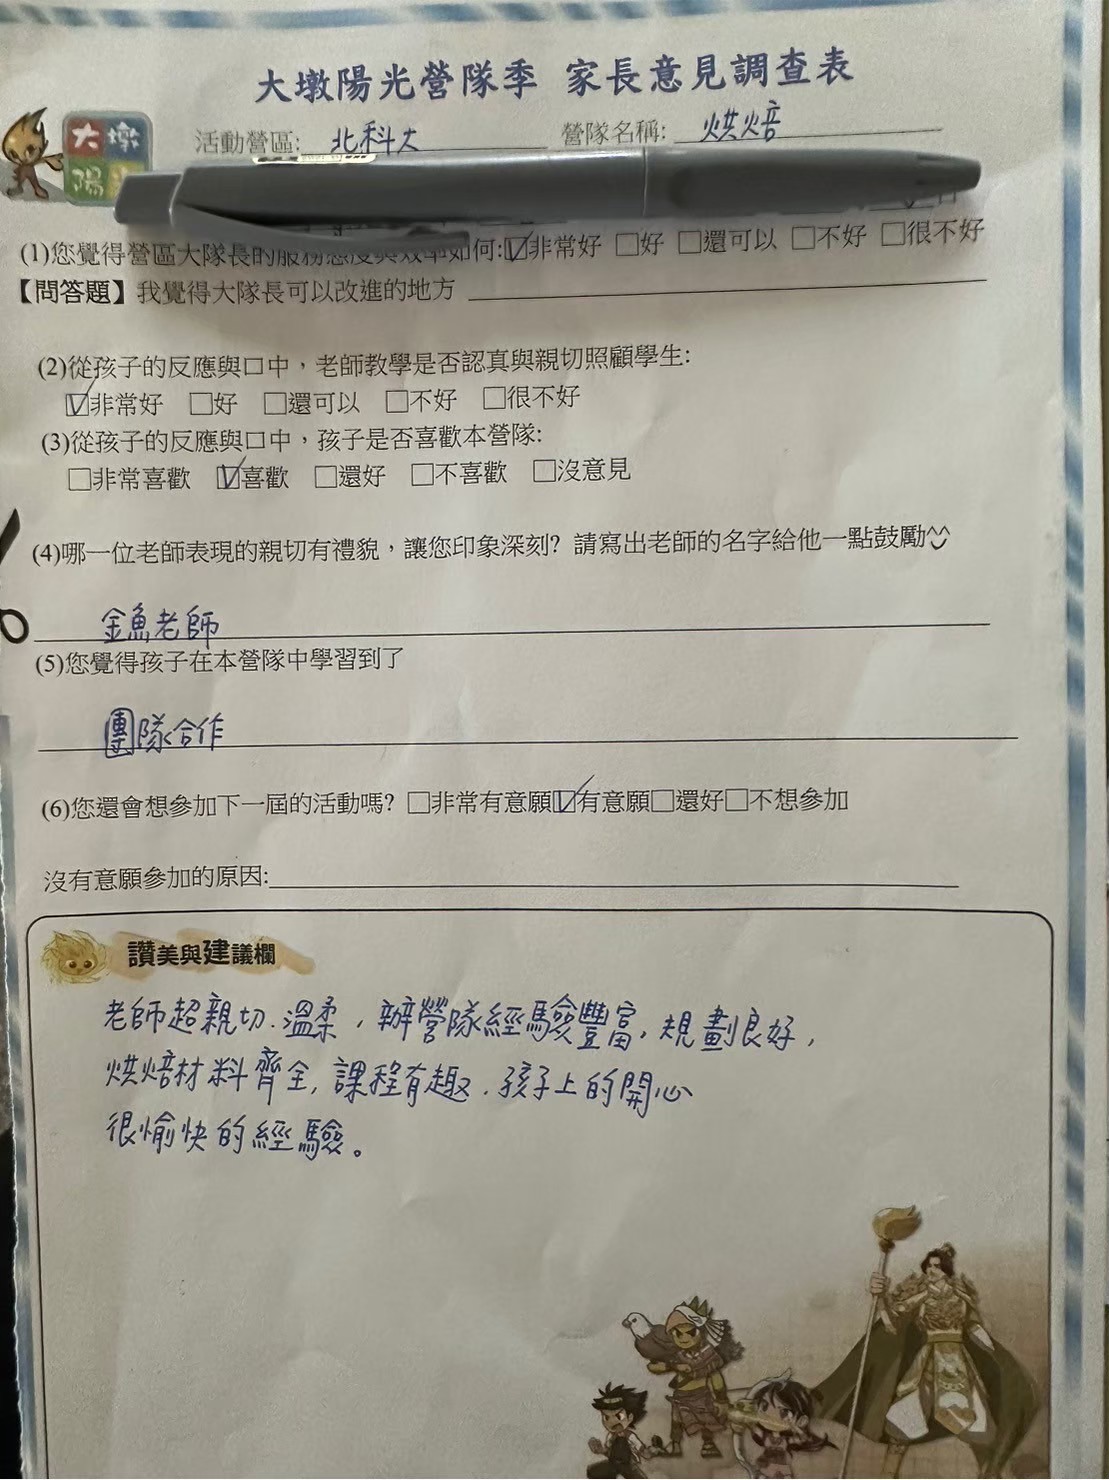 大墩陽光營隊季 家長意見調查表
大墩
陽
活動營區: 北科大 營隊名稱: 烘焙
(1)您覺得營區大隊長的服務態度與效率如何:☑非常好 □好 □還可以 □不好 □很不好
【問答題】我覺得大隊長可以改進的地方
(2)從孩子的反應與口中，老師教學是否認真與親切照顧學生:
☑非常好 □好 □還可以 □不好 □很不好
(3)從孩子的反應與口中，孩子是否喜歡本營隊:
□非常喜歡 ☑喜歡 □還好 □不喜歡 □沒意見
(4)哪一位老師表現的親切有禮貌，讓您印象深刻? 請寫出老師的名字給他一點鼓勵^^
金魚老師
(5)您覺得孩子在本營隊中學習到了
團隊合作
(6)您還會想參加下一屆的活動嗎? □非常有意願☑有意願□還好□不想參加
沒有意願參加的原因:
讚美與建議欄
老師超親切.溫柔，辦營隊經驗豐富，規劃良好，
烘焙材料齊全，課程有趣．孩子上的開心
很愉快的經驗。